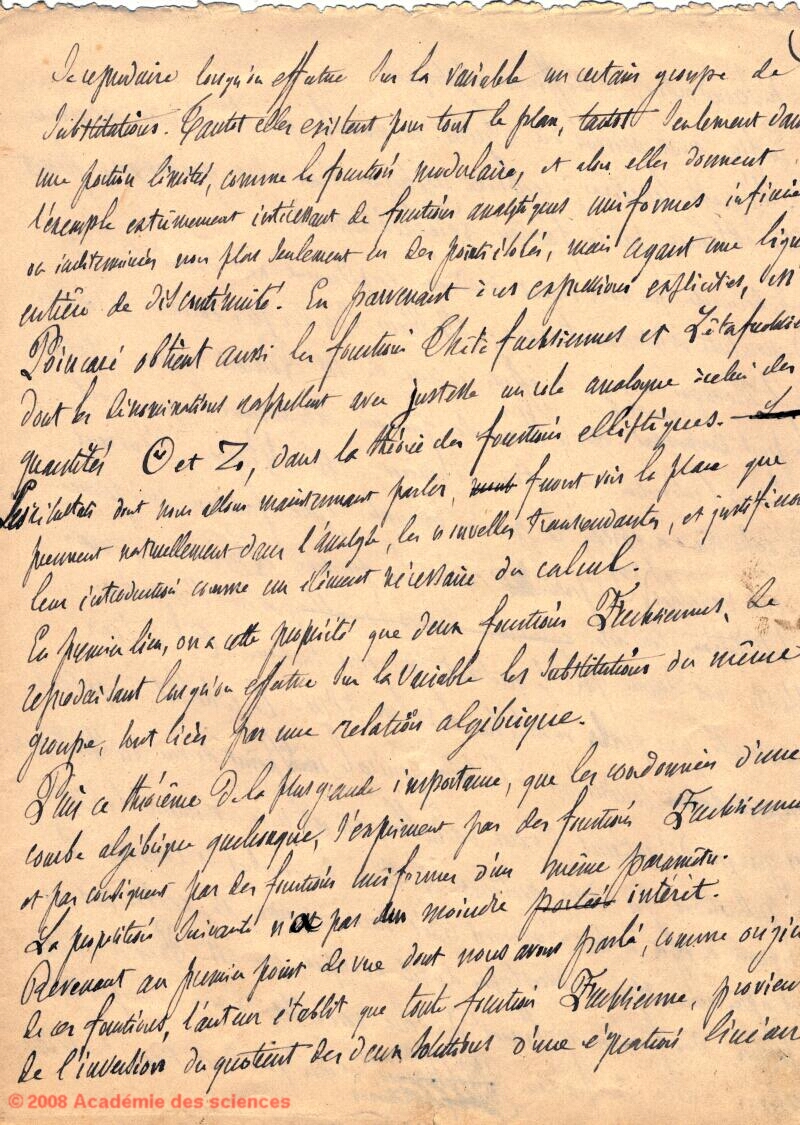 se reproduire lorsqu'on effectue sur la variable un certain groupe de
substitutions. Tantôt elles existent pour tout le plan, tantôt seulement dans
une portion limitée, comme la fonction modulaire, et alors elles donnent
l'exemple extrêmement intéressant de fonctions analytiques uniformes infinies
ou indéterminées non plus seulement en des points isolés, mais ayant une ligne
entière de discontinuité. En parvenant à ces expressions explicites,
Poincaré obtient aussi les fonctions Thêtafuchsiennes et Zêtafuchsiennes
dont les dénominations rappellent avec justesse un role analogue à celui des
quantités Θ et Z, dans la théorie des fonctions elliptiques.
Les résultats dont nous allons maintenant parler, feront voir la place que
prennent naturellement dans l'analyse, les nouvelles transcendantes, et justifieront
leur introduction comme un élément nécessaire du calcul.
En premier lieu, on a cette propriété que deux fonctions Fuchsiennes, se
reproduisant lorsqu'on effectue sur la variable les substitutions du même
groupe, sont liées par une relation algébrique.
Puis ce théorème de la plus grande importance, que les coordonnées d'une
courbe algébrique quelconque, s'expriment par des fonctions Fuchsiennes
et par conséquent par des fonctions uniformes d'un même paramètre.
La proposition suivante n'a pas un moindre intérêt.
Revenant au premier point de vue dont nous avons parlé, comme origine
de ces fonctions, l'auteur établit que toute fonction Fuchsienne, provient
de l'inversion du quotient des deux solutions d'une équation linéaire
© 2008 Académie des sciences